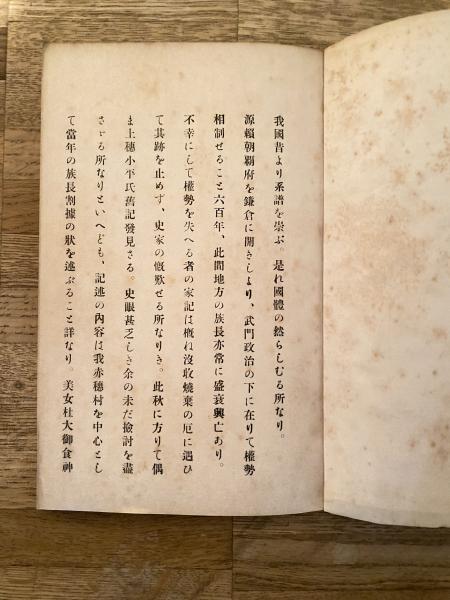 我國昔より系譜を崇ぶ。是れ國體の然らしむる所なり。
源賴朝覇府を鎌倉に開きしより、武門政治の下に在りて權勢
相制せること六百年、此間地方の族長亦常に盛衰興亡あり。
不幸にして權勢を失へる者の家記は概ね沒收燒棄の厄に遇ひ
て其跡を止めず、史家の慨歎せる所なりき。此秋に方りて偶
ま上穗小平氏舊記發見さる。史眼甚乏しき余の未だ撿討を盡
さゞる所なりといへども、記述の內容は我赤穗村を中心とし
て當年の族長割據の狀を述ぶること詳なり。美女杜大御食神